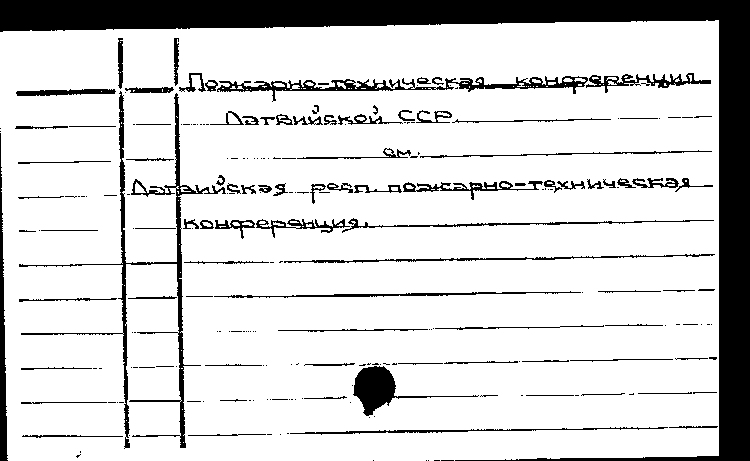 Пожарно-техническая конференция
Латвийской ССР
см.
Латвийская респ. пожарно-техническая
конференция.